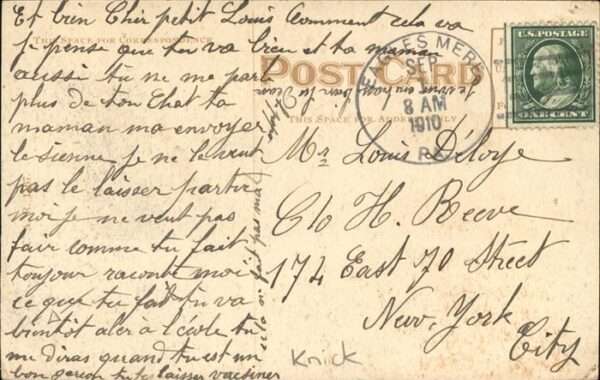 Et bien Cher petit Louis Comment cela va
je pense que tu va bien et ta maman
aussi tu ne me part
plus de ton Chat ta
maman ma envoyer
le sienne je ne le veut
pas le laisser partir
moi je ne veut pas
fair comme tu fait
toujour raconte moi
ce que tu fait tu va
bientôt aler à l'école tu
me diras quand tu est un
bon garçon tu te laisser vacsiner
cela ne fait pas mal
THIS SPACE FOR CORRESPONDENCE
POST CARD
THIS SPACE FOR ADDRESS ONLY
EAGLES MERE
SEP
8 AM
1910
PA.
U.S. POSTAGE
ONE CENT
Mr Louis Déloye
C/o H. Reeve
174 East 70 Street
New York
City
Knick